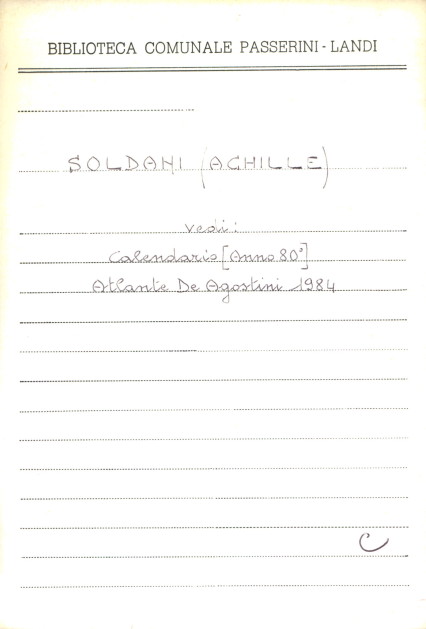 BIBLIOTECA COMUNALE PASSERINI - LANDI
SOLDANI (ACHILLE)
vedi:
Calendario [Anno 80°]
Atlante De Agostini 1984
C